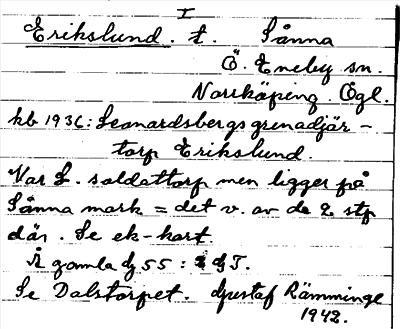 I
Erikslund. t. Sånna
Ö. Eneby sn.
Norrköping. Ögl.
kb 1936: Leonardsbergs grenadjär-
torp Erikslund.
Var L. soldattorp men ligger på
Sånna mark = det v. av de 2 stp
där. Se ek-kart.
Å gamla dj 55: dj T.
Se Dalstorpet. Gustaf Rämminge
1942.